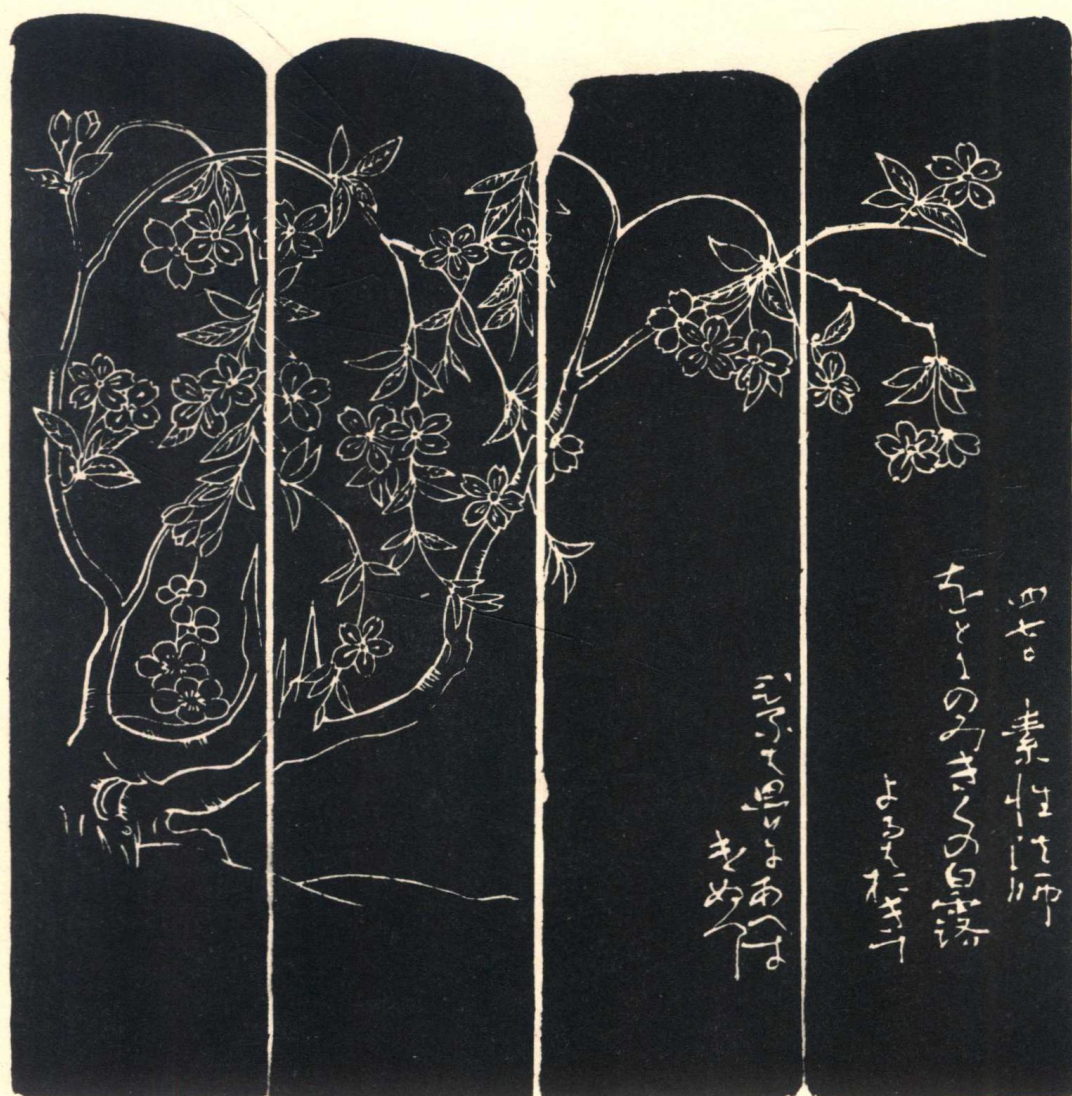 四七〇 素性法師
おとにのみきくの白露
よるはおきて
ひるは思ひにあへす
けぬへし